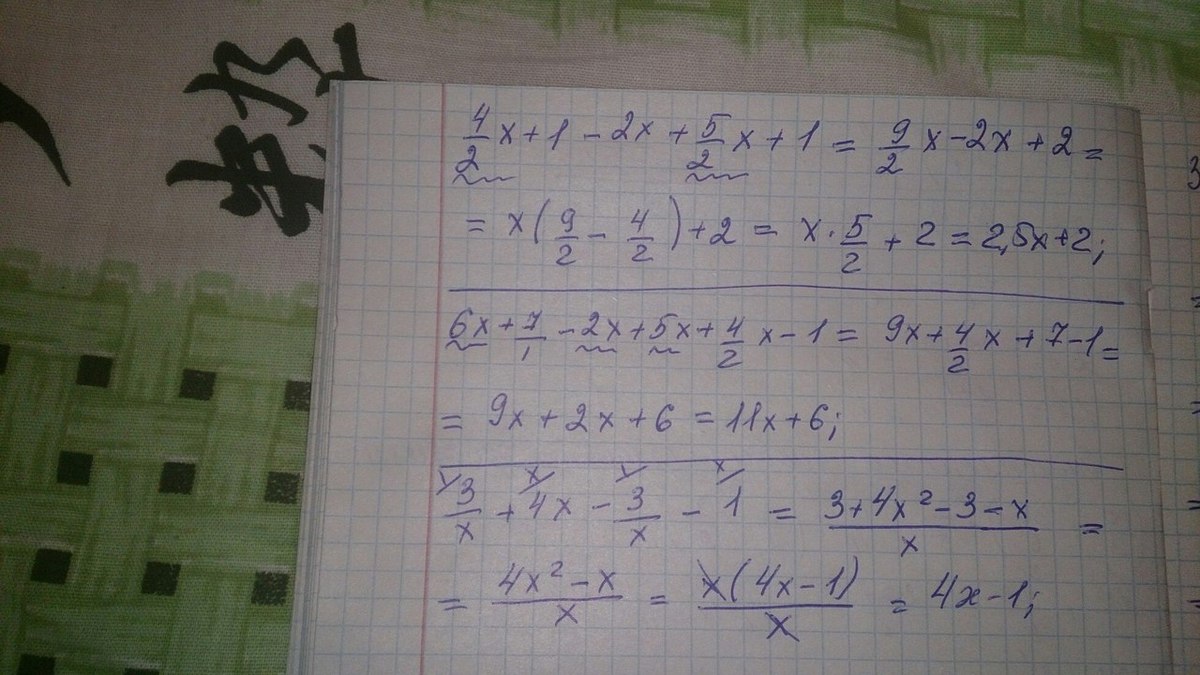 4/2 x + 1 - 2x + 5/2 x + 1 = 9/2 x - 2x + 2 =
= x ( 9/2 - 4/2 ) + 2 = x · 5/2 + 2 = 2,5x + 2;
6x + 7/1 - 2x + 5x + 4/2 x - 1 = 9x + 4/2 x + 7 - 1 =
= 9x + 2x + 6 = 11x + 6;
3/x + 4x - 3/x - 1 = (3 + 4x² - 3 - x)/x =
= (4x² - x)/x = x(4x - 1)/x = 4x - 1;